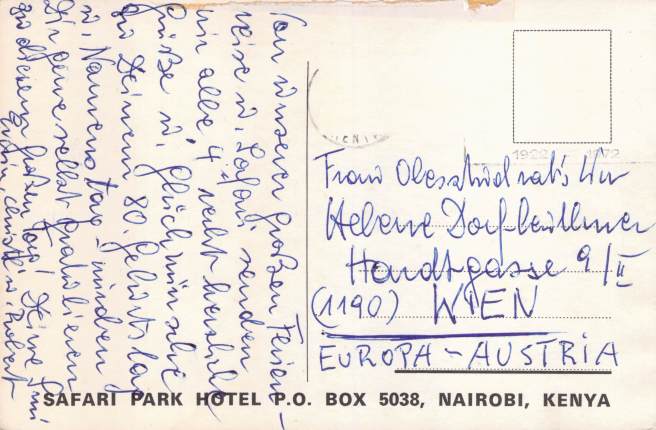 Von unserer großen Ferien-
reise u. Safari senden
wir alle 4 recht herzliche
Grüße u. Glückwünsche
zu Deinem 80. Geburtstag
u. Namenstag – würden
Dir gerne selbst gratulieren
zu diesem großen Tag! Deine
Christl u. Robert
1922 1972
Frau Oberstudrat's
Helene
Hardtgasse 9/II
(1190) WIEN
EUROPA – AUSTRIA
SAFARI PARK HOTEL P.O. BOX 5038, NAIROBI, KENYA